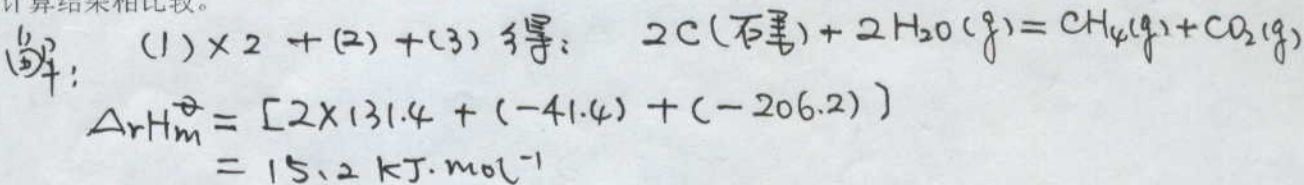 计算结果相比较。
解: (1)×2 +(2) +(3) 得: 2C(石墨) + 2H₂O(g) = CH₄(g)+CO₂(g)
ΔrHm^θ = [2×131.4 + (-41.4) + (-206.2)]
= 15.2 KJ·mol⁻¹